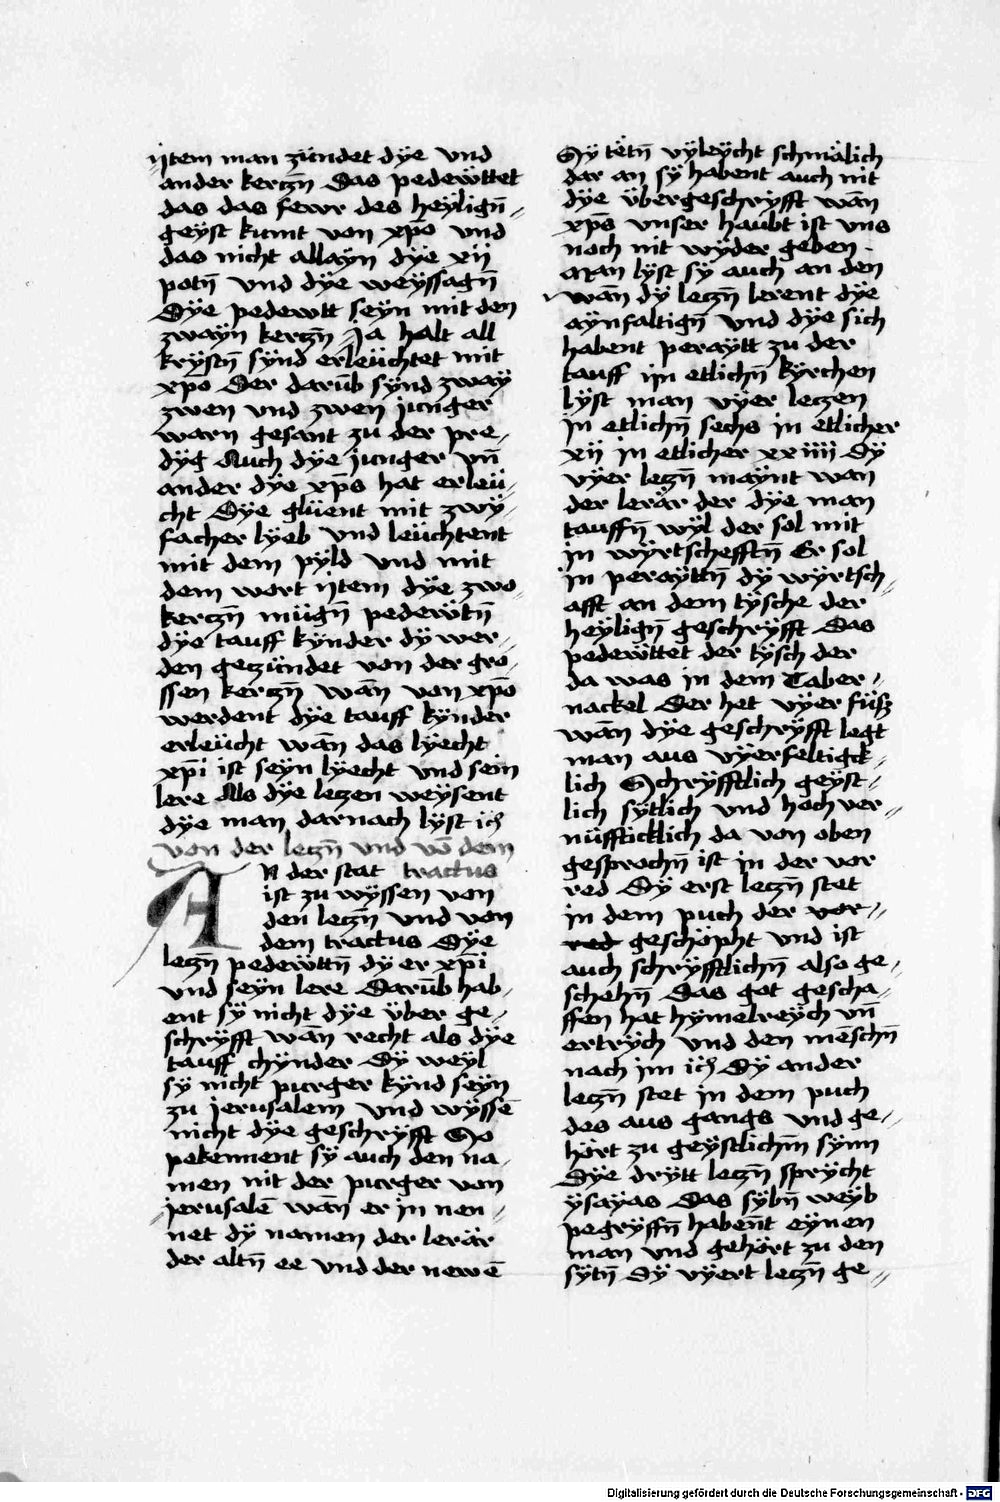 ijtem man zündet dÿe vnd
ander kerczn̄ Das pedewttet
das das fewr des heÿlign̄
geÿst kumt von xp̄o vnd
das nicht allaÿn dÿe xij
potn̄ vnd dÿe weÿssagn̄
Dÿe pedewtt seyn mit den
zwaÿn kerczn̄ Ja halt all
krÿstn̄ sÿnd erleüchtet mit
xp̄o Der darūb sÿnd zwaÿ
zwen vnd zwen junger
warn gesant zu der pre„
dÿg Auch dÿe junger vn̄
ander dÿe xp̄s hat erleü„
cht Dÿe glüent mit zwÿ„
facher lÿeb vnd leüchtent
mit dem pÿld vnd mit
dem wort ijtem dÿe zwo„
kerczn̄ mügn̄ pedewtn̄
dÿe tauff kÿnder dÿ wer„
den geczündet von der gro„
ssen kerczn̄ wān von xp̄o
werdent dÿe tauff kÿnder
erleücht wān das lÿecht
xp̄i ist seÿn lÿecht vnd sein
lere Als dÿe leczen weÿsent
dÿe man darnach lÿst ich
von der leczn̄ vnd vō dem
AN der stat tractus
ist zu wÿssen von
den leczn̄ vnd von
dem tractus Dÿe
leczn̄ pedewttn̄ dÿ er xp̄i
vnd seÿn lere Darūb hab„
ent sÿ nicht dÿe über ge„
schrÿfft wān recht als dÿe
tauff chÿnder Dÿ weÿl
sÿ nicht purger kÿnd seÿn
zu jerusalem vnd wÿssē
nicht dÿe geschrÿfft So
pekennent sÿ auch den na„
men nit der purger von
jerusalē wān er in nen„
net dÿ namen der lerär
der altn̄ ee vnd der newē
Sÿ tëtn̄ vÿleÿcht schmälich
dar an sÿ habent auch nit
dÿe übergeschrÿfft wān
xp̄s vnser haubt ist vns
noch nit wÿder geben
Man lÿst sÿ auch an den
wān dÿ leczn̄ lerent dÿe
aÿnfaltign̄ vnd dÿe sich
habent peraÿtt zu der
tauff im etlichn̄ kÿrchen
lÿst man vÿer leczen
in etlichn̄ sechs in etlicher
xij in etlicher xxiiii Dÿ
vÿer leczn̄ maÿnt wan
der lerär der dÿe man
tauffn̄ wÿl der sol mit
in wÿrtschefftn̄ Er sol
in peraÿttn̄ dÿ wÿrtsch„
afft an dem tÿsche der
heÿlign̄ geschrÿfft Das
pedewttet der tÿsch der
da was in dem Taber„
nackel Der het vÿer füsz
wān dÿe geschrÿfft legt
man aus vÿerfeltigck„
lich Schrÿfftlich geÿst„
lich sÿtlich vnd hoch ver„
nüfftticklich da von oben
gesprochn̄ ist in der vor
red Dÿ erst leczn̄ stet
in dem puch der vor„
red geschöpht vnd ist
auch schrÿfftlichn̄ also ge„
schehn̄ Das got gescha„
ffen hat hÿmelreÿch vn̄
ertrÿch vnd den mēschn̄
nach im ich Dÿ ander
leczn̄ stet in dem puch
des aus gangs vnd ge„
hört zu geÿstlichm̄ sÿnn
Dÿe drÿtt leczn̄ sprÿcht
ÿsaÿas Das sÿbn̄ weÿb
pegrÿffn̄ habent eÿnen
man vnd gehört zu den
sÿtn̄ Dÿ vÿert leczn̄ ge„
Digitalisierung gefördert durch die Deutsche Forschungsgemeinschaft - DFG